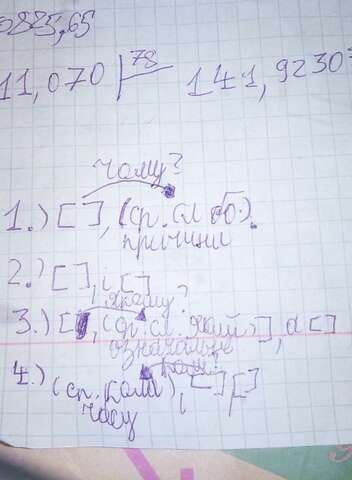 0885,65
11,070 78 141,9230
чому?
1.) [ ], (сп. сл об.).
причини
2.) [ ], і [ ]
якому?
3.) [ , (сп. сл. який), ], а [ ]
означальне
коли?
4.) (сп. коли), [ ], [ ]
часу